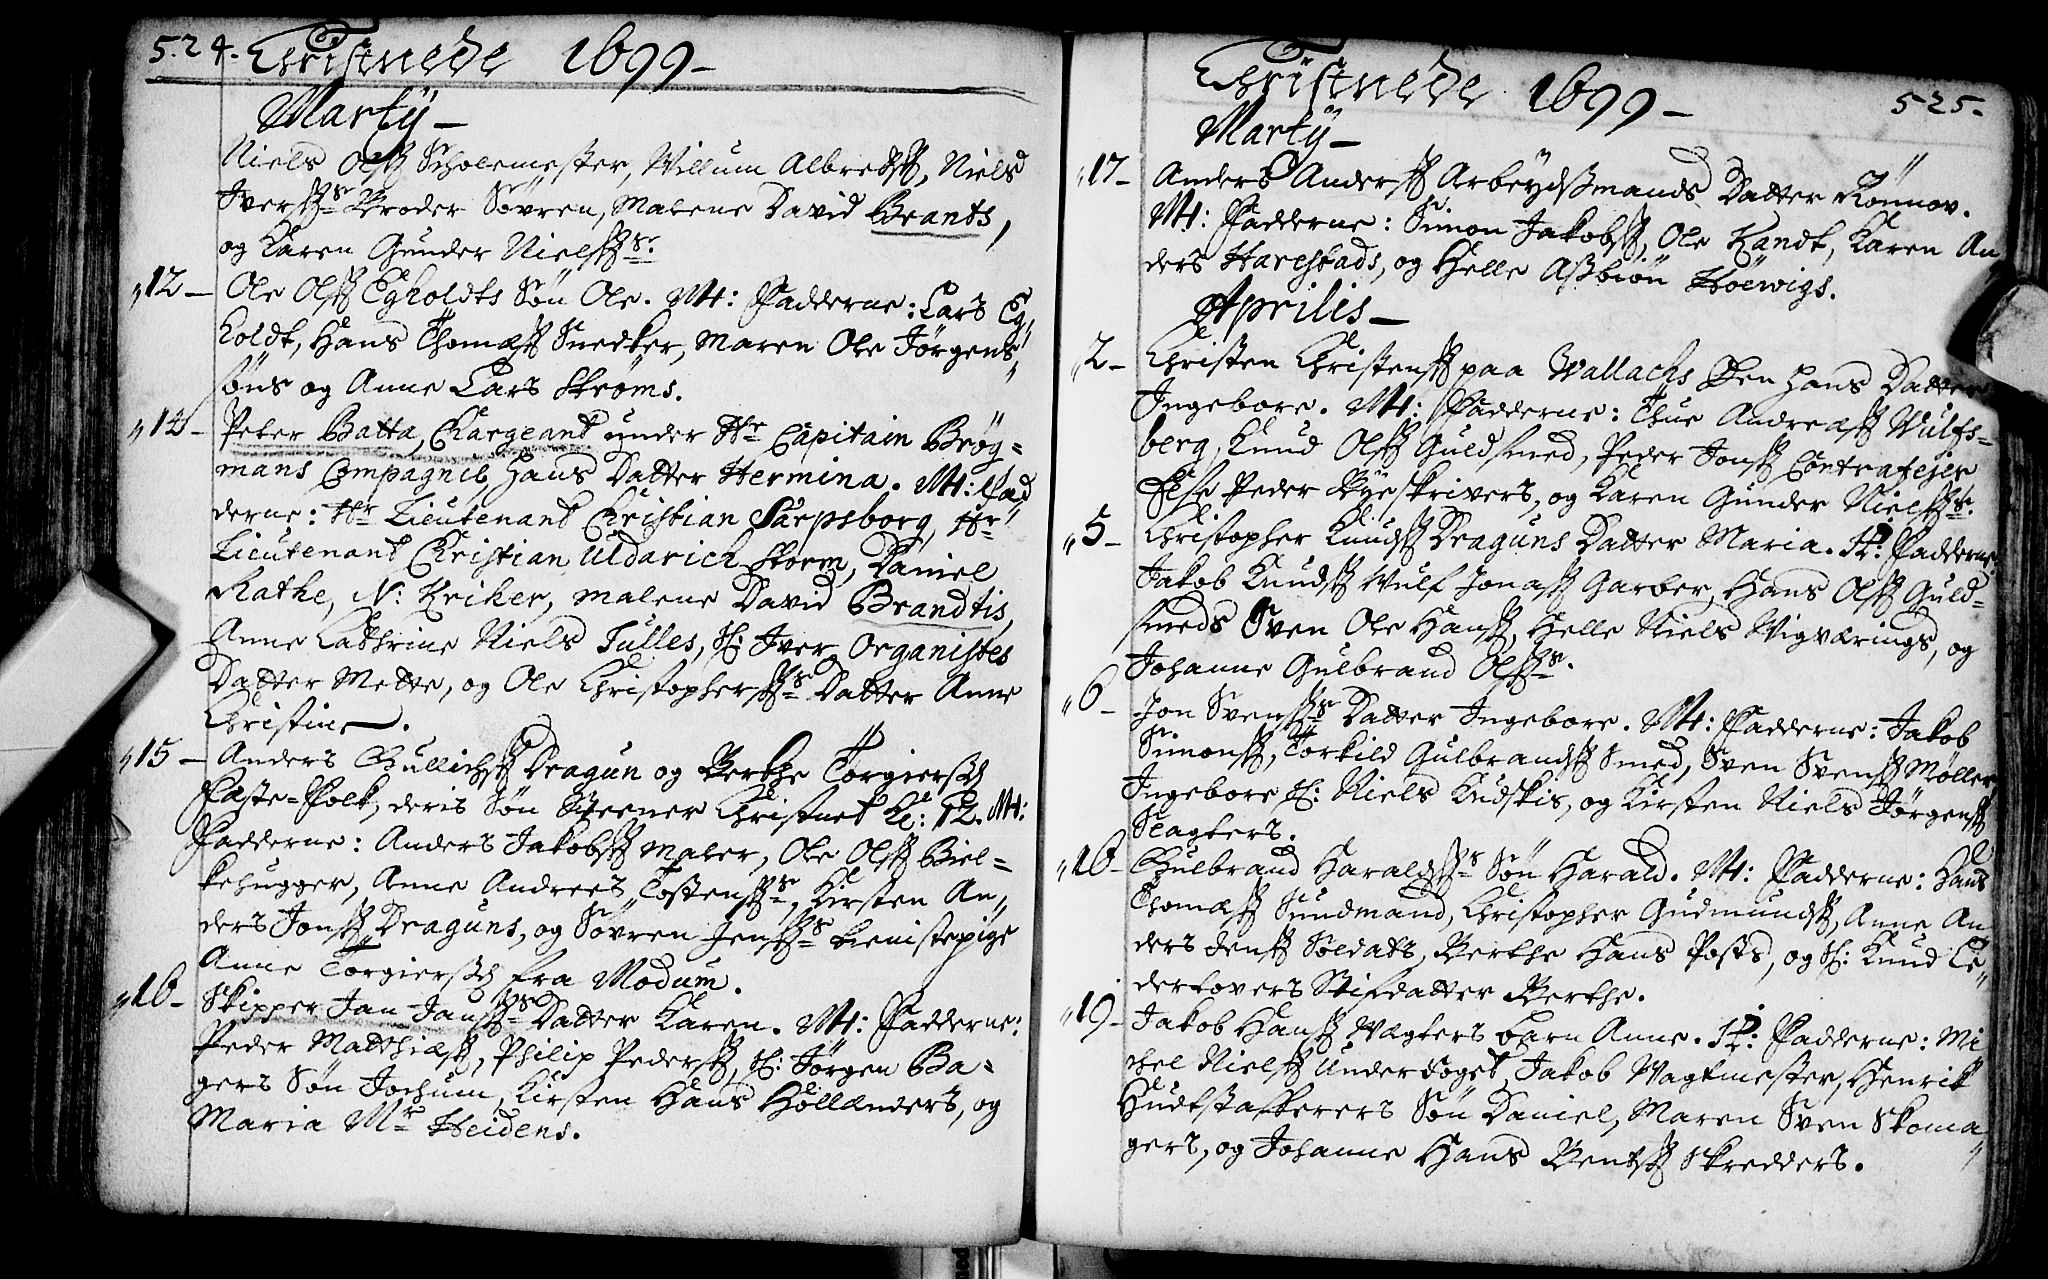 524. Christnede 1699 –
Martij –
Niels Olsß Scholemester, Willum Albredtsß, Niels
Iversßs Broder Søvren, Malene David Brants,
og Karen Gunder Nielsßs.
12 – Ole Olsß Egholdts Søn Ole. M: Fadderne: Lars Eg„
holdt, Hans Thomæsß Snedker, Maren Ole Jørgens„
søns og Anne Lars Strøms.
14 – Peter Batta, Chargeant under Hr Capitain Brøg=
mans Compagnie, hans Datter Hermina. M: Fad„
derne: Hr Lieutenant Christian Sarpsborg, Hr
Lieutenant Christian Uldarich Storm, Daniel
Rathe, N: Kriker, Malene David Brandtis,
Anne Cathrine Niels Tulles, Sl: Iver Organistes
Datter Mette, og Ole Christophersßs Datter Anne
Christine.
15 – Anders Gullichsß Dragun og Berthe Torgiersd
Fæste=Folk, deris Søn Steener Christnet Kl: 12. M:
Fadderne: Anders Jakobsß Maler, Ole Olsß Biel=
kehugger, Anne Andrees Tostensßs, Kirsten An„
ders Jonsß Draguns, og Søvren Jensßs tienistepige
Anne Torgiersd fra Modum.
16 – Skipper Jan Jansßs Datter Karen. M: Fadderne:
Peder Matthiæsß, Philip Pedersß, Sl: Jørgen Ba=
gers Søn Jochum, Kirsten Hans Hollænders, og
Maria Mr Heidens.
Christnede 1699 – 525.
Martij –
17 – Anders Andersß Arbeydsmands Datter Rønnov.
M: Fadderne: Simon Jakobsß, Ole Kandt, Karen An„
ders Harestads, og Helle Asbiøn Høewigs.
Aprilis –
2 – Christen Christensß paa Wallachs Øen hans Datter
Ingebore. M: Fadderne: Thue Andreæsß Wulfs=
berg, Knud Olsß Guldsmed, Peder Jonsß Contrafejer
Else Peder Byeskrivers, og Karen Gunder Nielsßs.
5 – Christopher Knudsß Draguns Datter Maria. Fadderne
Jakob Knudsß Wulf Jonasß Garber, Hans Olsß Guld=
smeds Sven Ole Hansß, Helle Niels Wigværings, og
Johanne Gulbrand Olsßs.
6 – Jon Svensßs Datter Ingebore. M: Fadderne: Jakob
Simonsß, Torkild Gulbrandsß Smed, Sven Svensß Møller,
Ingebore Sl: Niels Kudskis, og Kirsten Niels Jørgensß
Slagters.
16 – Gulbrand Haraldsßs Søn Harald. M: Fadderne: Hans
Thomæsß Sundmand, Christopher Gudmundsß, Anne An„
ders Jensß Soldats, Berthe Hans Posts, og Sl: Knud Le„
dertovers Stifdatter Berthe.
19 – Jakob Hansß Vægters barn Anne. Fadderne: Mi„
chel Nielsß Underfoget, Jakob Wagtmester, Henrik
Hudtstafferers Søn Daniel, Maren Sven Skoma„
gers, og Johanne Hans Bentsß Skredders.